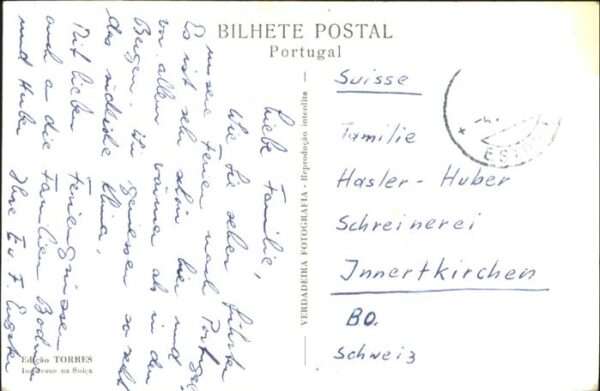 BILHETE POSTAL
Portugal
Liebe Familie,
Wie Sie sehen führten
unsere Ferien nach Portugal
Es ist sehr schön hier und
vor allem wärmer als in den
Bergen. Wir geniessen so sehr
das südliche Klima.
Mit lieben Feriengrüssen
auch an die Familien
und Huber Ihre E. u. F.
Suisse
Familie
Hasler - Huber
Schreinerei
Innertkirchen
BO.
Schweiz
VERDADEIRA FOTOGRAFIA - Reprodução interdita
Edição TORRES
Impresso na Suíça